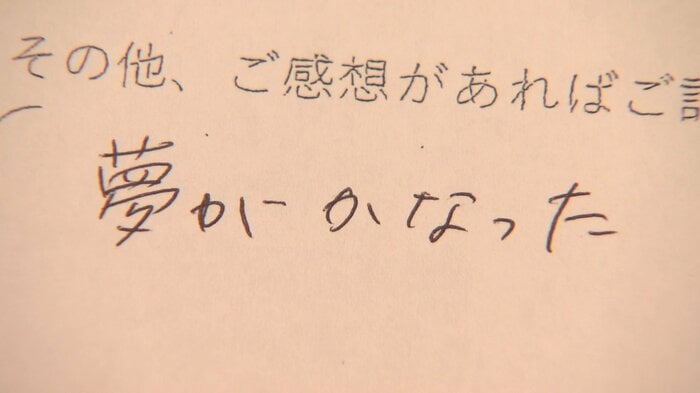 その他、ご感想があればご記
夢がかなった